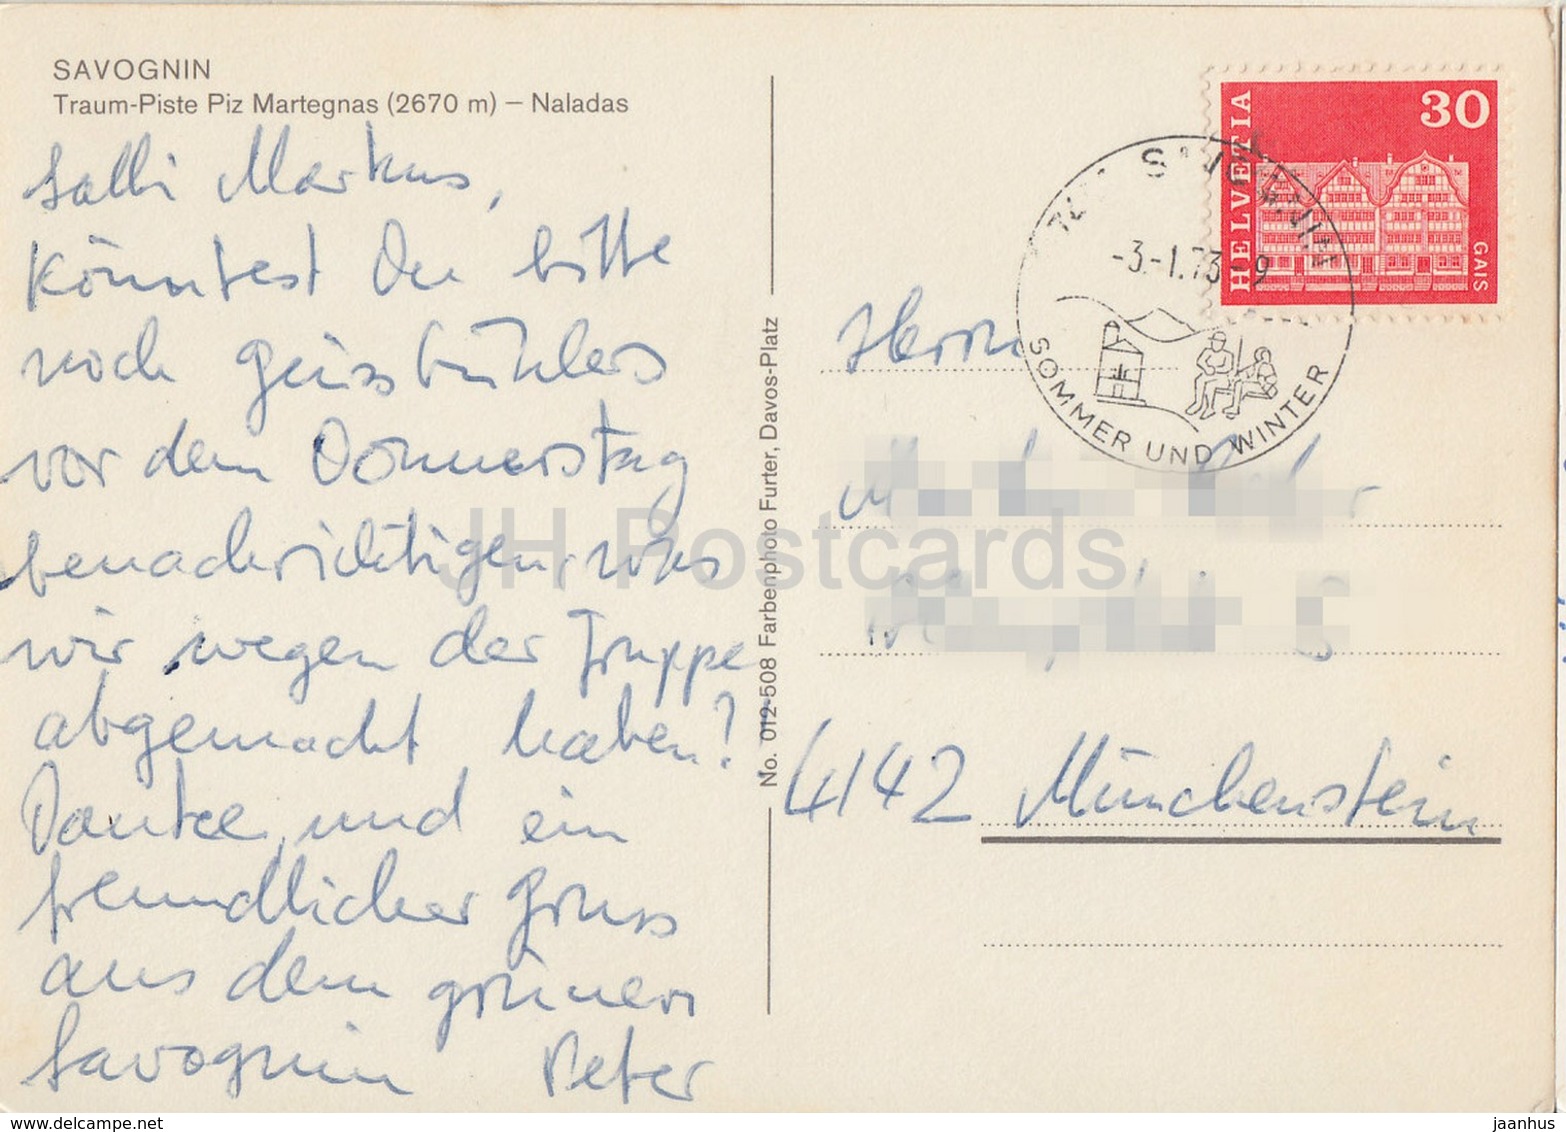 SAVOGNIN
Traum-Piste Piz Martegnas (2670 m) – Naladas
Salli Markus,
Könntest Du bitte
noch Geissbühlers
vor dem Donnerstag
benachrichtigen, was
wir wegen der Truppe
abgemacht haben?
Danke, und ein
freundlicher Gruss
aus dem grünen
Savognin Peter
No. 012-508 Farbenphoto Furter, Davos-Platz
HELVETIA
30
GAIS
-3.-1.73-9
SOMMER UND WINTER
Herrn
4142 Münchenstein
JH Postcards
delcampe.net
jaanhus